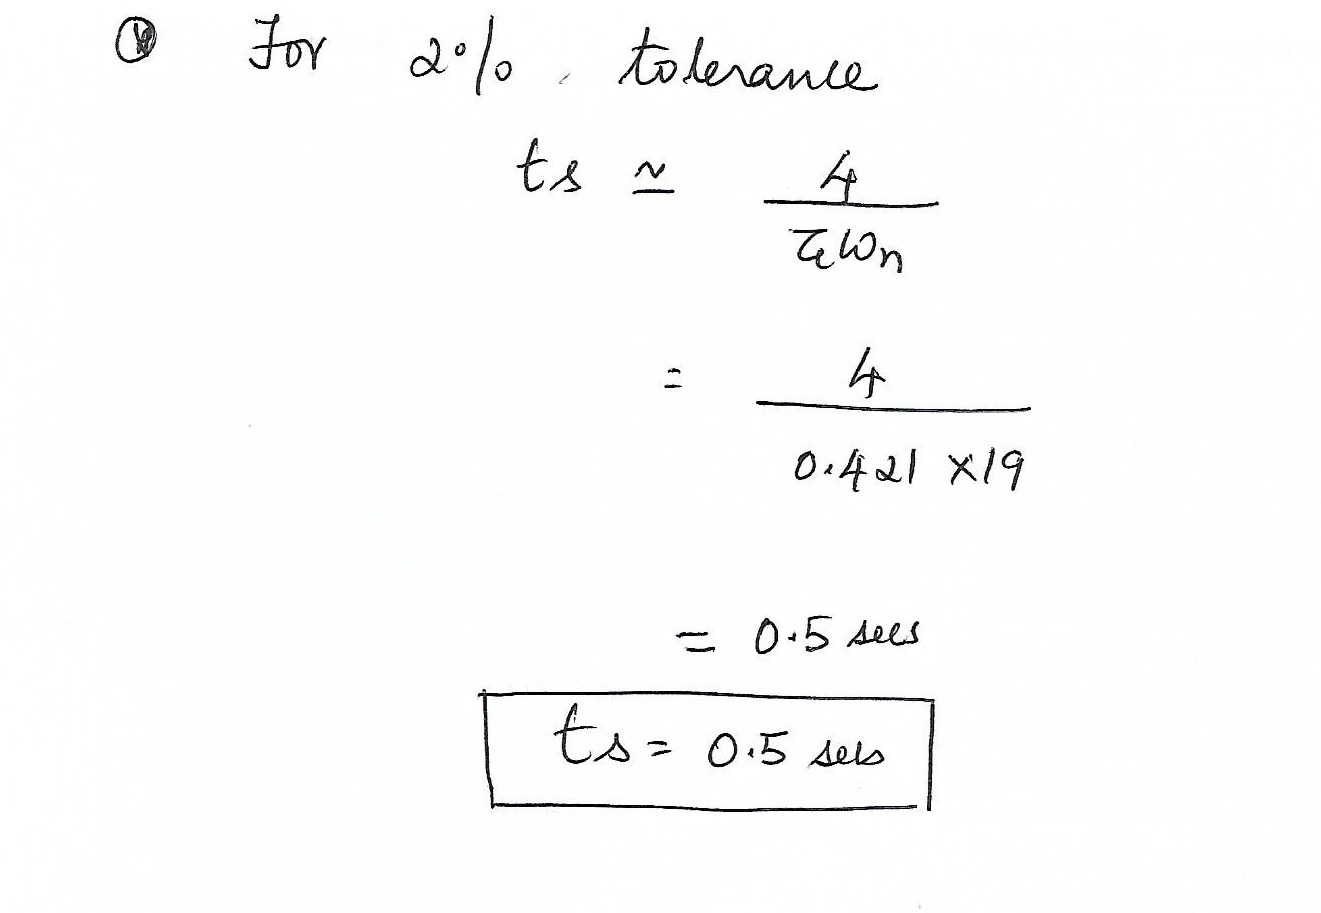 For 2% tolerance
ts ≃ 4
ζωn
= 4
0.421 × 19
= 0.5 secs
ts = 0.5 secs